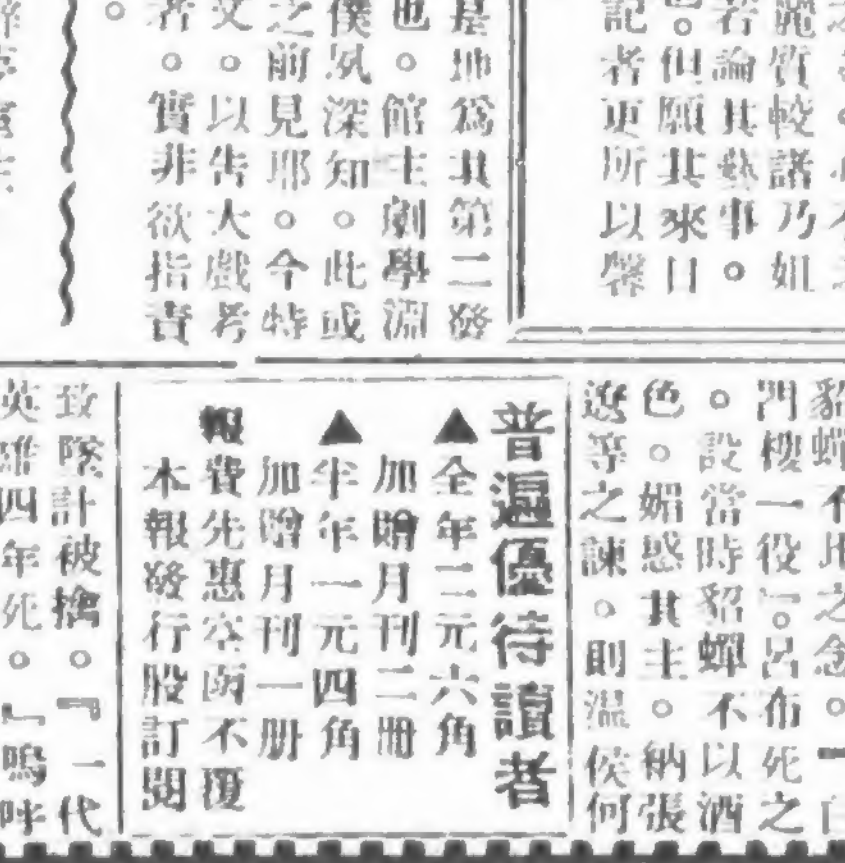 麗質較諸乃姐
若論其藝事。
但願其來日
記者更所以馨
是地爲其第二發
也。館主劇學淵
僕夙深知。此或
之前見耶。今特
文。以告大戲考
者。實非欲指責
。
貂蟬不比之念。
門樓一役。呂布死之
。設當時貂蟬不以酒
色。媚惑其主。納張
遼等之諫。則溫侯何
普遍優待讀者
▲全年二元六角
加贈月刊二冊
▲半年一元四角
加贈月刊一册
報費先惠空函不覆
本報發行股訂閱
致墜計被擒。『一代
英雄四年死。』嗚呼